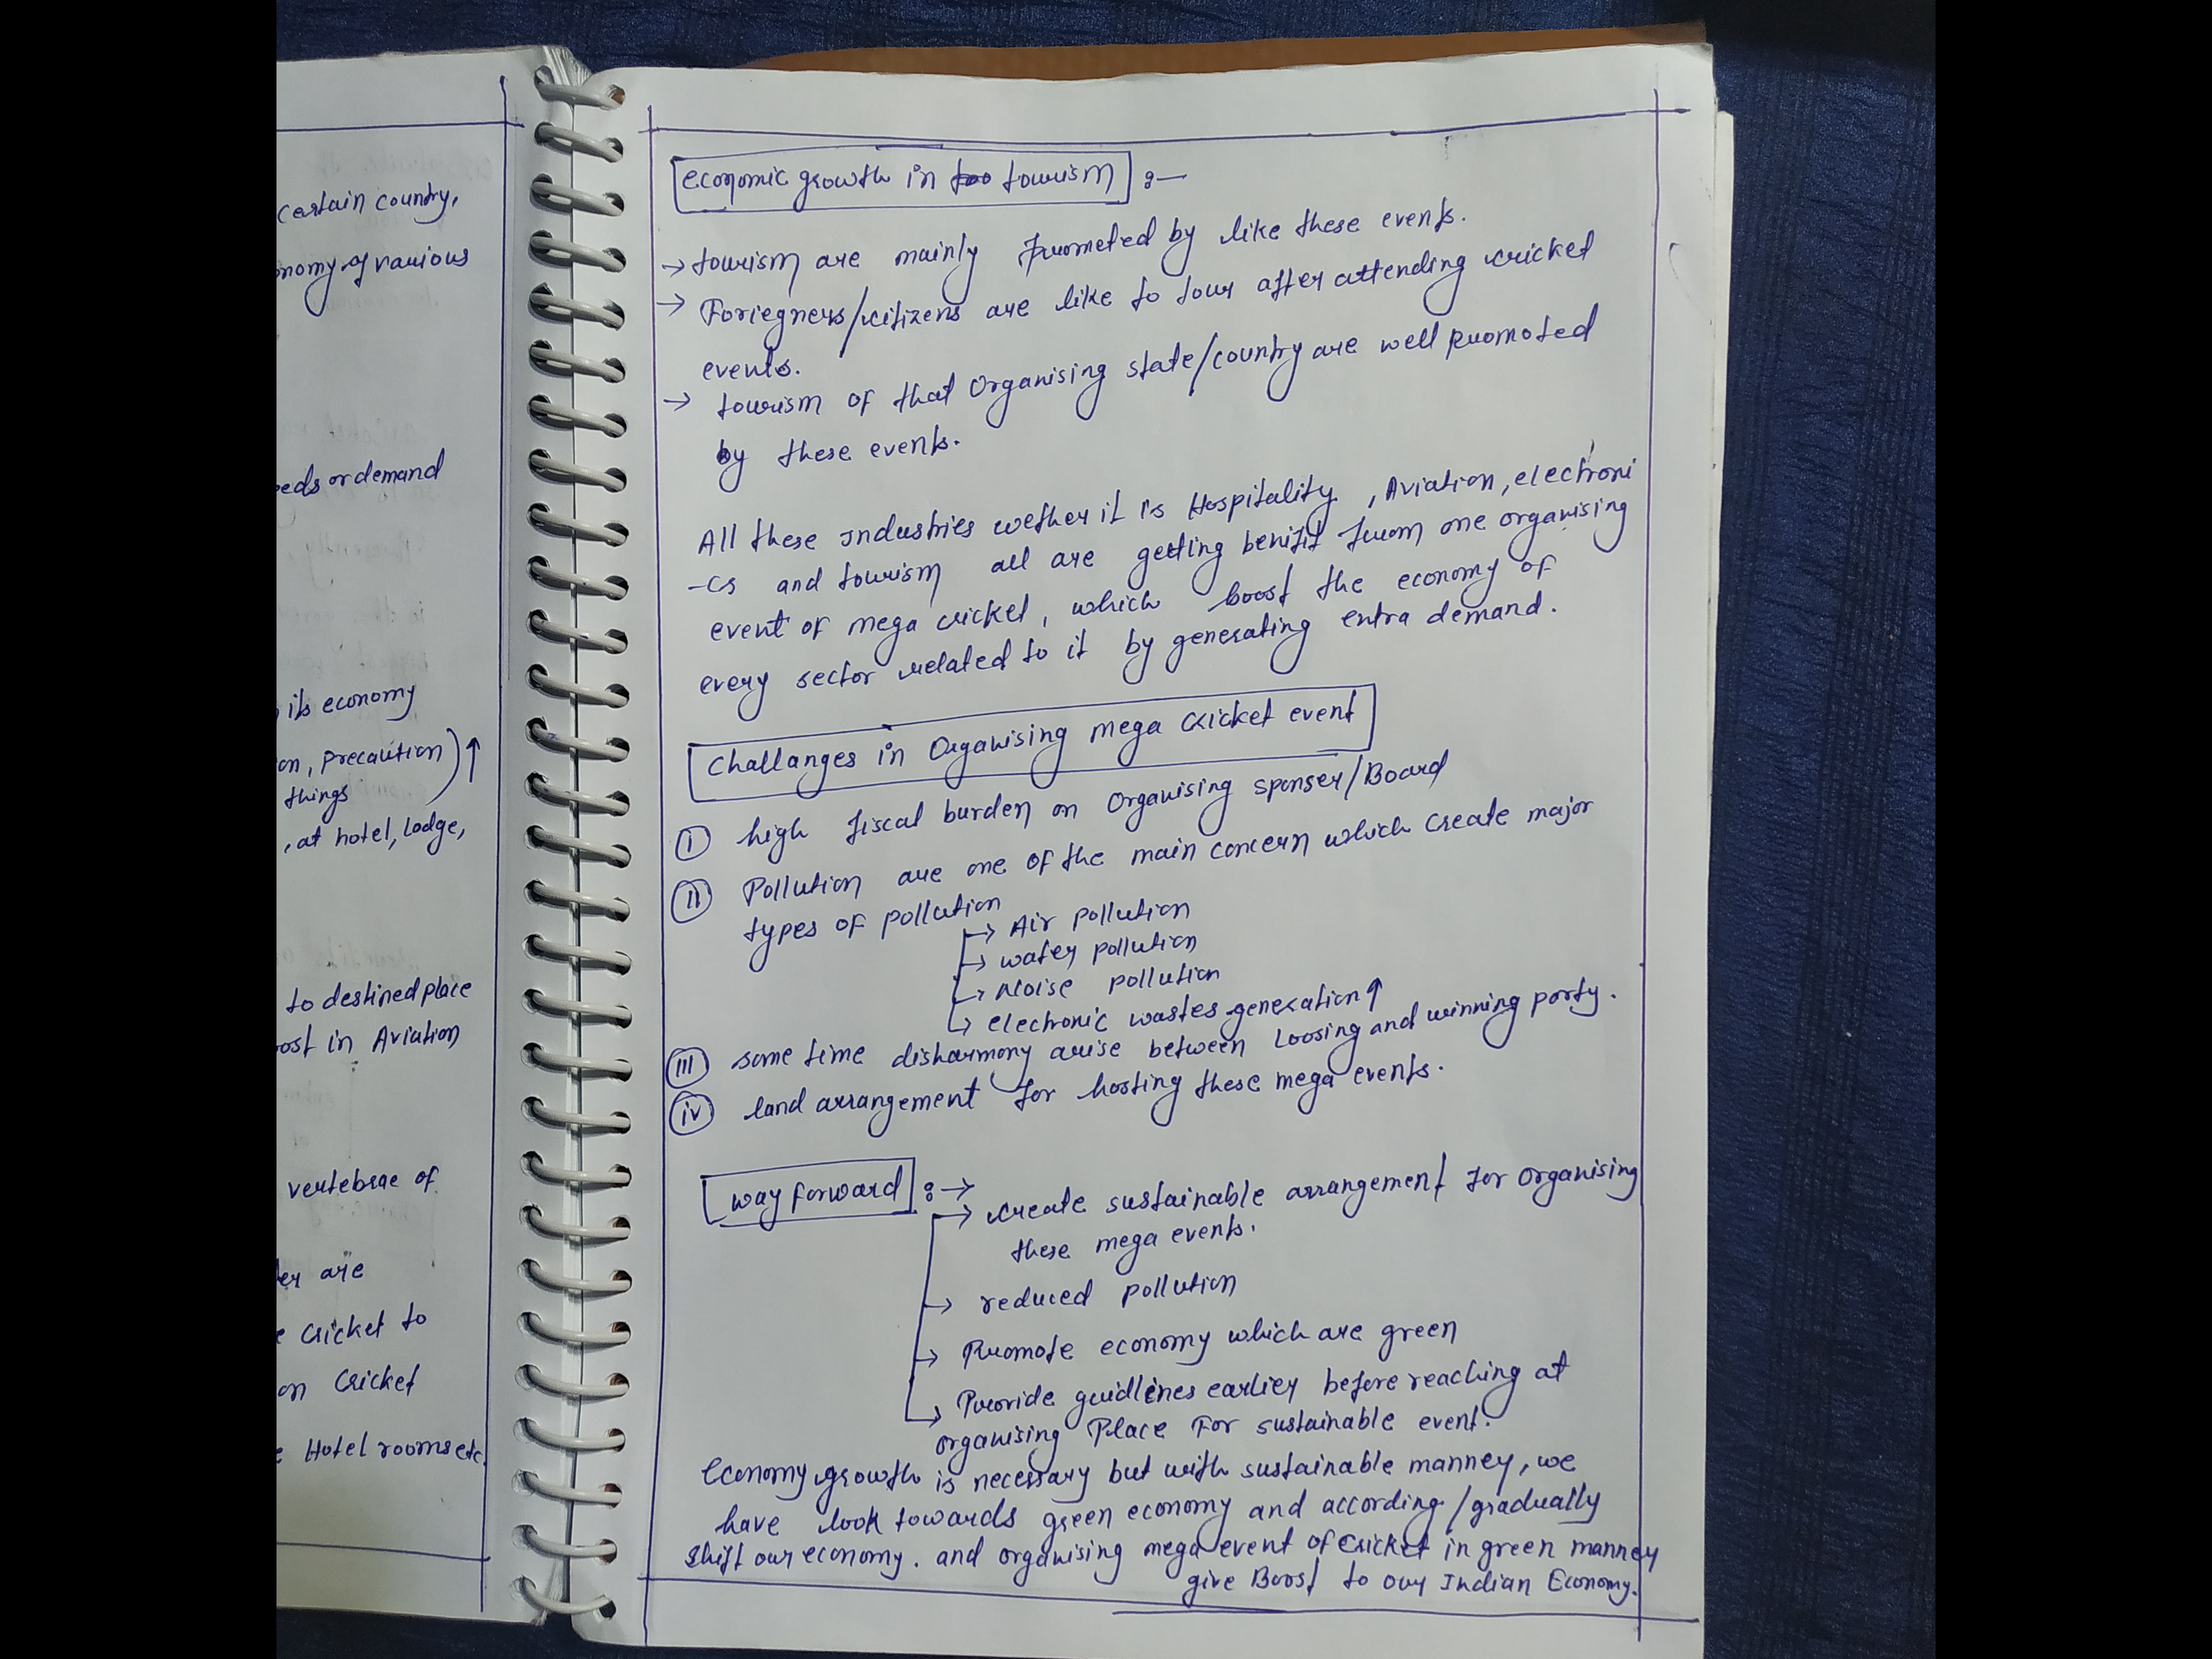 certain country,
nomy of various
eds or demand
its economy
on, precaution) ↑
things
, at hotel, lodge,
to destined place
ost in Aviation
vertebrae of
er are
e cricket to
on cricket
e Hotel rooms etc.
economic growth in too tourism :—
→ tourism are mainly promoted by like these events.
→ Foriegners/citizens are like to tour after attending cricket
events.
→ tourism of that Organising state/country are well promoted
by these events.
All these industries wether it is Hospitality, Aviation, electroni
-cs and tourism all are getting benifit from one organising
event of mega cricket, which boost the economy of
every sector related to it by generating entra demand.
Challanges in Organising mega cricket event
(i) high fiscal burden on Organising sponser/Board
(ii) Pollution are one of the main concern which create major
types of pollution
→ Air pollution
→ water pollution
→ Noise pollution
→ electronic wastes generation ↑
(iii) some time disharmony arise between Loosing and winning party.
(iv) land arrangement for hosting these mega events.
way forward :→
→ create sustainable arrangement for organising
these mega events.
→ reduced pollution
→ Promote economy which are green
→ Provide guidlines earlier before reaching at
organising Place For sustainable event.
Economy growth is necessary but with sustainable manner, we
have look towards green economy and according/gradually
shift our economy. and organising mega event of cricket in green manner
give Boost to our Indian Economy.